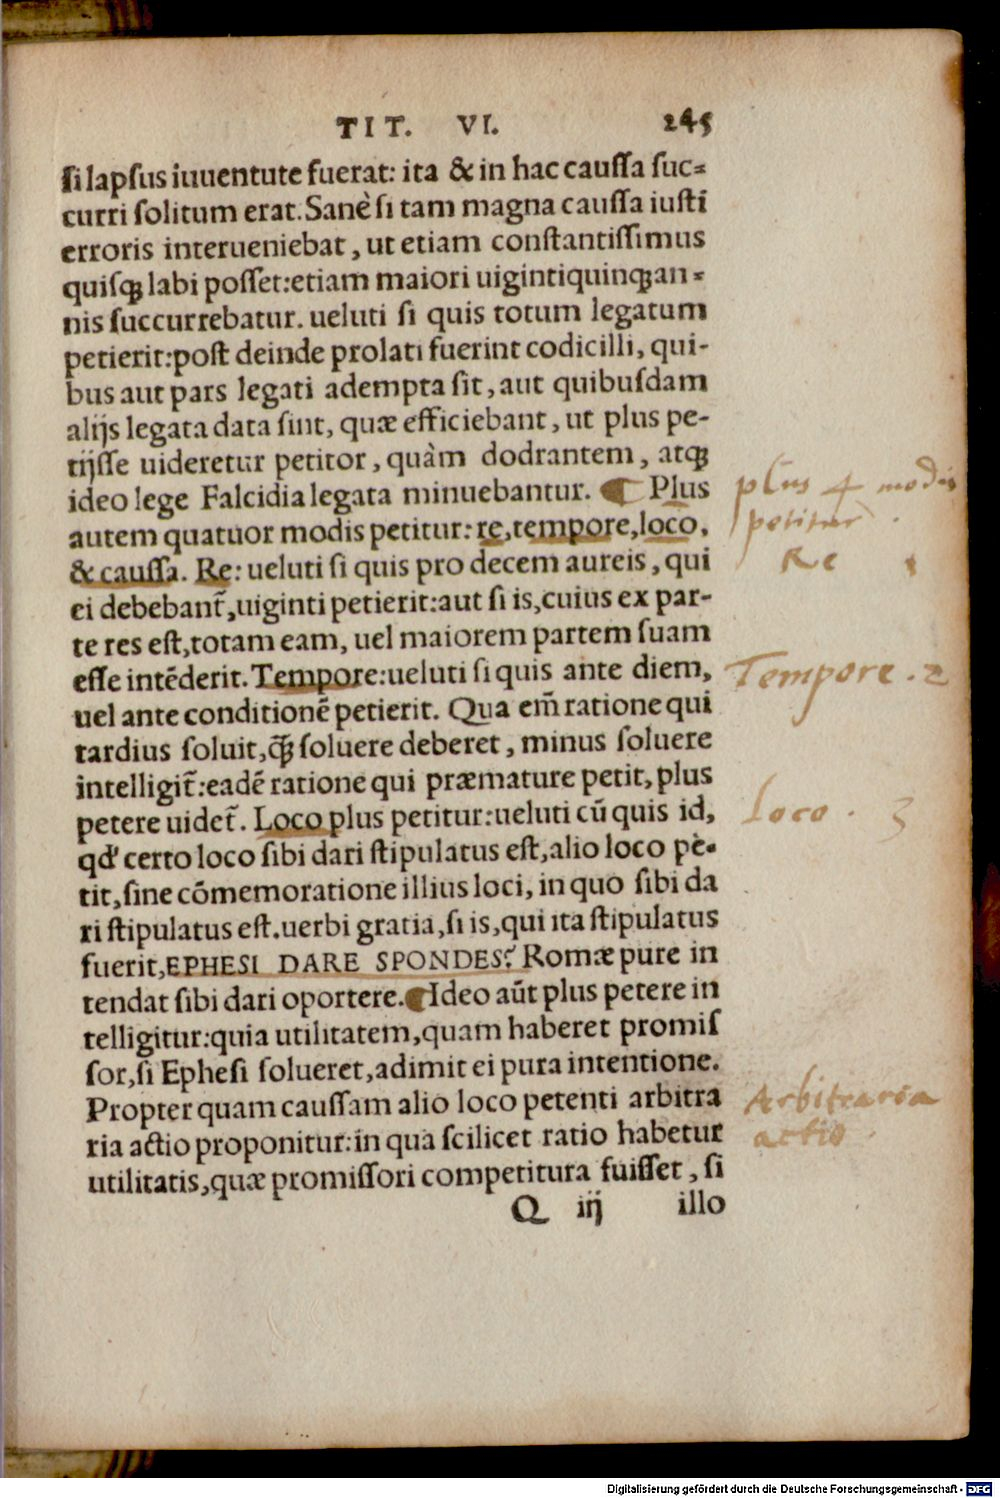 TIT. VI. 245
si lapsus iuuentute fuerat: ita & in hac caussa suc=
curri solitum erat. Sanè si tam magna caussa iusti
erroris interueniebat, ut etiam constantissimus
quisq; labi posset: etiam maiori uigintiquinq; an=
nis succurrebatur. ueluti si quis totum legatum
petierit: post deinde prolati fuerint codicilli, qui-
bus aut pars legati adempta sit, aut quibusdam
alijs legata data sint, quæ efficiebant, ut plus pe-
tijsse uideretur petitor, quàm dodrantem, atq;
ideo lege Falcidia legata minuebantur. ¶ Plus
autem quatuor modis petitur: re, tempore, loco,
& caussa. Re: ueluti si quis pro decem aureis, qui
ei debebant̃, uiginti petierit: aut si is, cuius ex par-
te res est, totam eam, uel maiorem partem suam
esse intẽderit. Tempore: ueluti si quis ante diem,
uel ante conditionẽ petierit. Qua em̃ ratione qui
tardius soluit, q̃; soluere deberet, minus soluere
intelligit̃: eadẽ ratione qui præmature petit, plus
petere uidet̃. Loco plus petitur: ueluti cũ quis id,
qd' certo loco sibi dari stipulatus est, alio loco pe-
tit, sine cõmemoratione illius loci, in quo sibi da
ri stipulatus est. uerbi gratia, si is, qui ita stipulatus
fuerit, EPHESI DARE SPONDES? Romæ pure in
tendat sibi dari oportere. ¶ Ideo aũt plus petere in
telligitur: quia utilitatem, quam haberet promis
sor, si Ephesi solueret, adimit ei pura intentione.
Propter quam caussam alio loco petenti arbitra
ria actio proponitur: in qua scilicet ratio habetur
utilitatis, quæ promissori competitura fuisset, si
Q iij illo
plus 4 modis
petitur
Re 1
Tempore . 2
Loco . 3
Arbitraria
actio
Digitalisierung gefördert durch die Deutsche Forschungsgemeinschaft - DFG